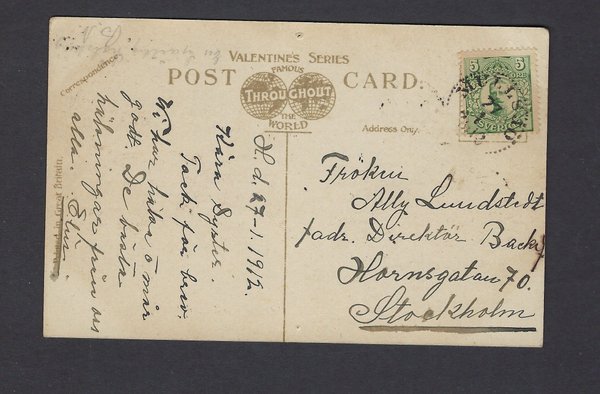 VALENTINE'S SERIES
FAMOUS
POST CARD.
THROUGHOUT
THE
WORLD
Correspondence.
Address Only.
Printed in Great Britain.
5 5
SVERIGE
H. d. 27-1. 1912.
Kära Syster.
Tack för brev.
Vi har hälsa o mår
godt. De bästa
hälsningar från oss
alla.
Fröken
Ally Lundstedt
adr. Direktör Back
Hornsgatan 70.
Stockholm